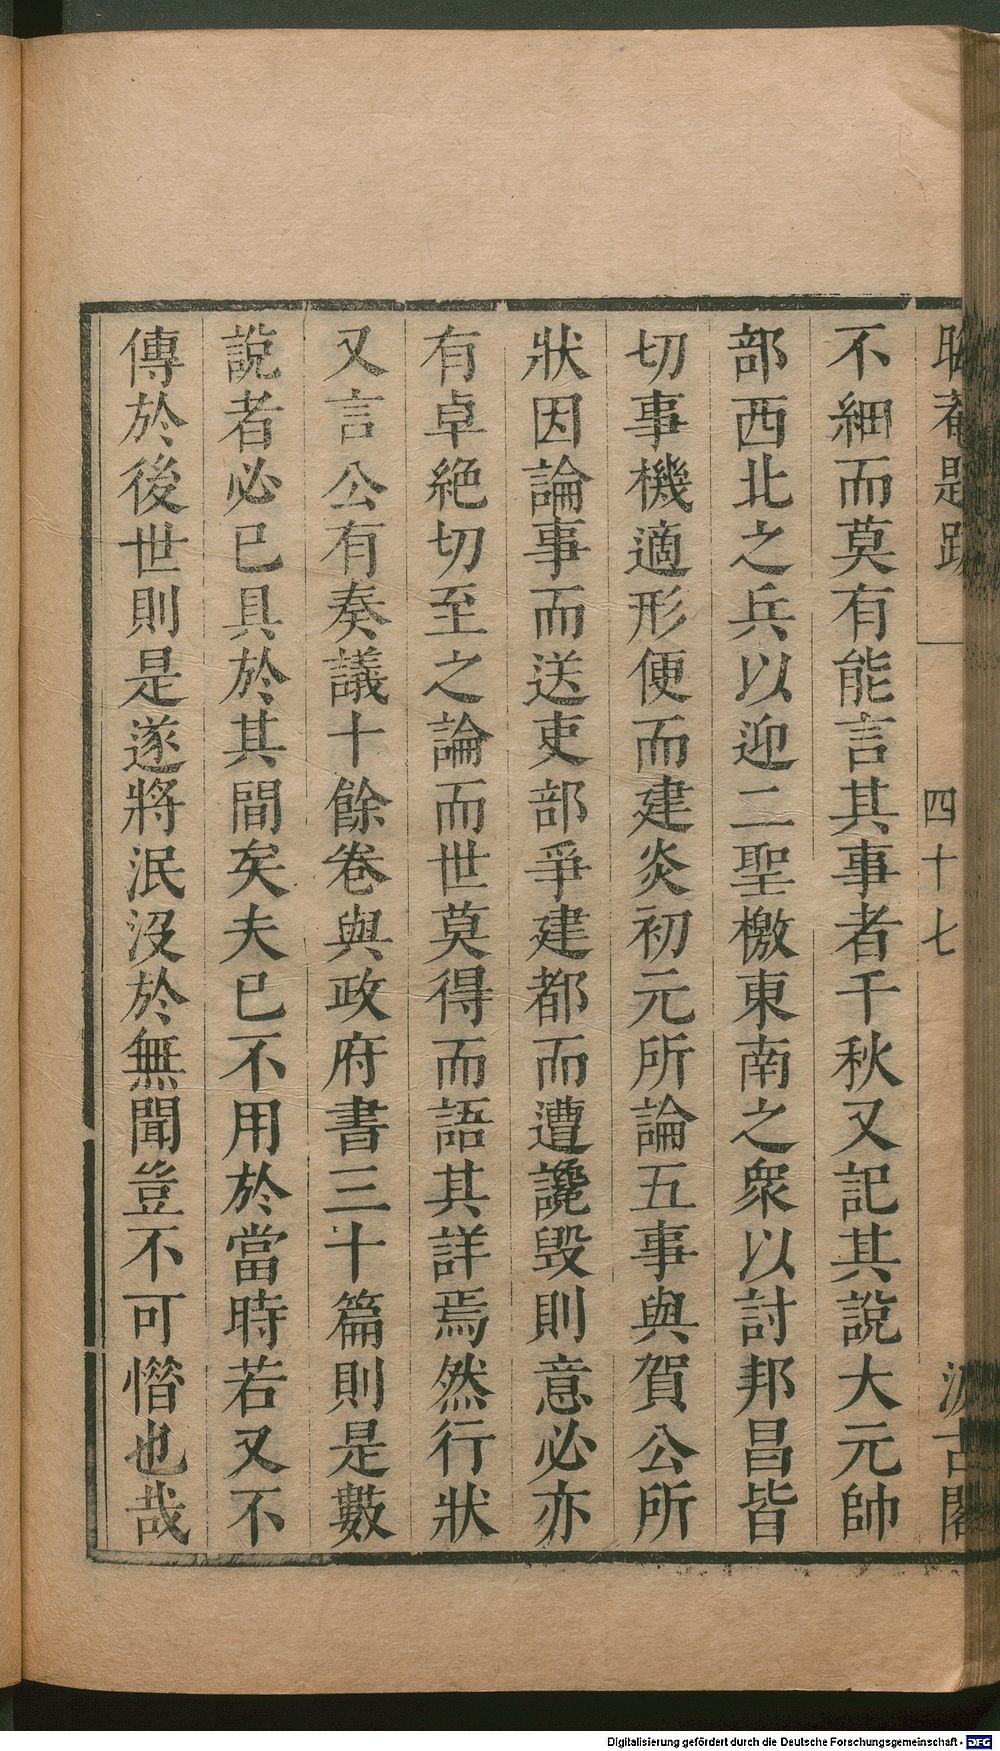 晦菴題跋 四十七 汲古閣
不細而莫有能言其事者千秋又記其說大元帥
部西北之兵以迎二聖檄東南之眾以討邦昌皆
切事機適形便而建炎初元所論五事與賀公所
狀因論事而送吏部爭建都而遭讒毀則意必亦
有卓絕切至之論而世莫得而語其詳焉然行狀
又言公有奏議十餘卷與政府書三十篇則是數
說者必已具於其間矣夫已不用於當時若又不
傳於後世則是遂將泯沒於無聞豈不可惜也哉
Digitalisierung gefördert durch die Deutsche Forschungsgemeinschaft - DFG